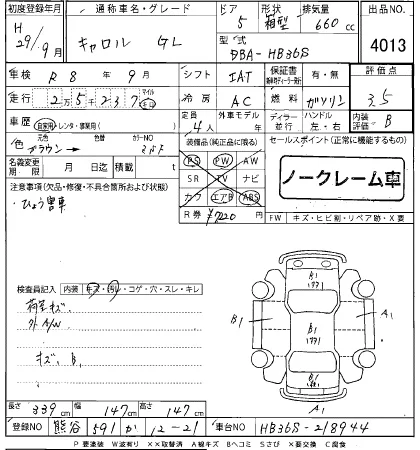 初度登録年月 通称車名・グレード ドア 形状 排気量 出品NO.
H 29/9月 キャロル GL 5 箱型 660 cc 4013
型式 DBA-HB36S
車検 R8年9月 シフト IAT 保証書 有・無 評価点
走行 2万5237 マイル キロ 冷房 AC 燃料 ガソリン 3.5
車歴 自家用・レンタ・事業用( ) 定員 4人 外車モデル ディーラー 並行 ハンドル 左・右 内装評価 B
色 元色 ブラウン→ 替色 カラーNO 装備品(純正品に限る) セールスポイント(正常に機能するもの)
名義変更期限 月 日迄 積載 t PS PW AW ノークレーム車
注意事項(欠品・修復・不具合箇所および状態) SR TV ナビ
ひょう害車 カワ エアB ABS
R券 ¥7220 FW キズ・ヒビ割・リペア跡・X要
検査員記入 内装 キズ・汚レ・コゲ・穴・スレ・キレ
荷室キズ
外A/W
キズ、B1
B1
B1
B1
A1
A1
長さ 339cm 幅 147cm 高さ 147cm
登録NO 熊谷 591 か 12-21 車台NO HB36S-218944
P要塗装 W波有り ××取替済 A線キズ Bヘコミ Sさび ×要交換 C腐食